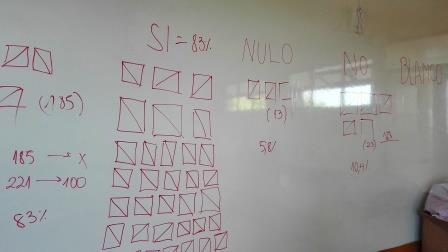 SI = 83%
NULO
NO
BLANCO
(185)
(13)
5,8%
(23)
10,4%
185 → x
221 → 100
83%